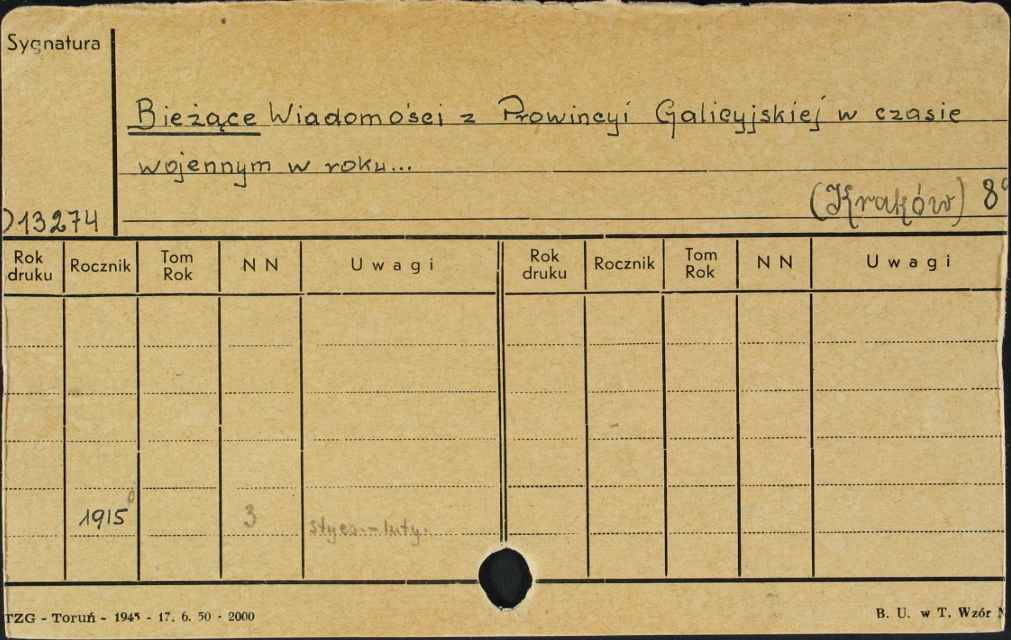 Sygnatura
Bieżące Wiadomości z Prowincyi Galicyjskiej w czasie
wojennym w roku...
(Kraków) 8°
13274
Rok druku Rocznik Tom Rok N N Uwagi Rok druku Rocznik Tom Rok N N Uwagi
1915 3 stycz.-luty.
TZG - Toruń - 1945 - 17. 6. 50 - 2000 B. U. w T. Wzór